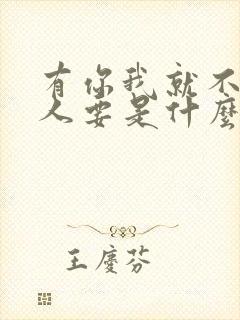 有你我就不
人要是什麼
王慶芬